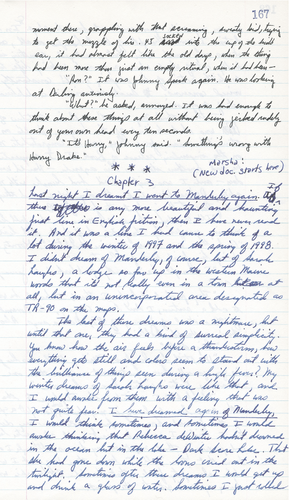 167
moment there, grappling with that screaming, sweaty kid, trying
to get the muzzle of his .45 into the cup of the kid's
ear, it had almost felt like the old days, when the thing
had been more than just an empty ritual, when it had been—
"Ron?" It was Johnny speak again. He was looking
at Darling anxiously.
"What?" he asked, annoyed. It was hard enough to
think about these things at all without being jerked rudely
out of your own head every ten seconds.
"It's Harry," Johnny said. "Something's wrong with
Harry Drake."
* * *
Marsha:
(New doc. starts here)
Chapter 3
Last night I dreamt I went to Manderley again. If
there is any more beautiful and haunting
first line in English fiction, then I have never read
it. And it was a line I had cause to think of a
lot during the winter of 1997 and the spring of 1998.
I didn't dream of Manderley, of course, but of Sarah
Laughs, a lodge so far up in the western Maine
woods that it's not really even in a town at
all, but in an unincorporated area designated as
TR-90 on the maps.
The last of these dreams was a nightmare, but
until that one, they had a kind of surreal simplicity.
You know how the air feels before a thunderstorm, how
everything gets still and colors seem to stand out with
the brilliance of things seen during a high fever? My
winter dreams of Sarah Laughs were like that, and
I would awake from them with a feeling that was
not quite fear. I have dreamed again of Manderley,
I would think sometimes, and sometimes I would
awake thinking that Rebecca deWinter hadn't drowned
in the ocean but in the lake — Dark Score Lake. That
she had gone down while the loons cried out in the
twilight. Sometimes after these dreams I would get up
and drink a glass of water. Sometimes I just rolled